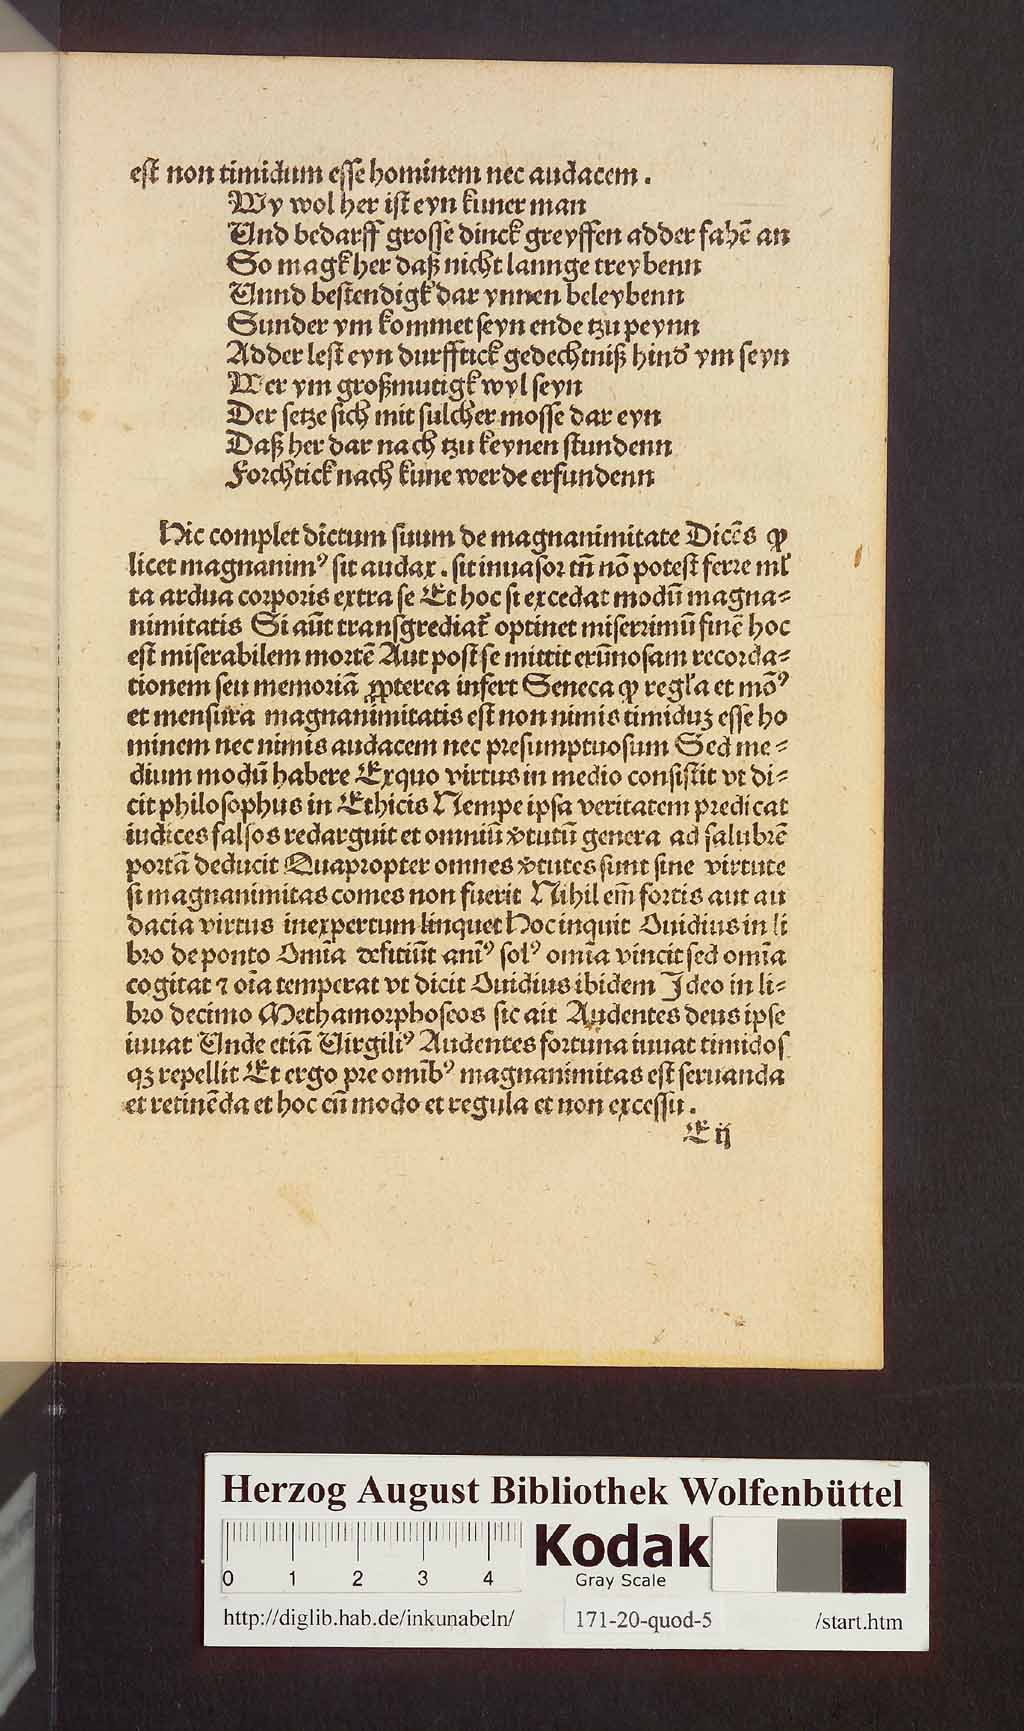 est non timidum esse hominem nec audacem.
Wy wol her ist eyn kuner man
Und bedarff grosse dinck greyffen adder fahē an
So magk her daß nicht lannge treybenn
Unnd bestendigk dar ynnen beleybenn
Sunder ym kommet seyn ende tzu peynn
Adder lest eyn durfftick gedechtniß hind' ym seyn
Wer ym großmutigk wyl seyn
Der setze sich mit sulcher mosse dar eyn
Daß her dar nach tzu keynen stundenn
Forchtick nach kune werde erfundenn
Hic complet dictum suum de magnanimitate Dicēs ꝙ
licet magnanimꝰ sit audax. sit inuasor tn̄ nō potest ferre ml̓
ta ardua corporis extra se Et hoc si excedat modū magna-
nimitatis Si aūt transgrediat̄ optinet miserrimū finē hoc
est miserabilem mortē Aut post se mittit erūnosam recorda-
tionem seu memoriā ꝓpterea infert Seneca ꝙ regl̓a et mōꝰ
et mensura magnanimitatis est non nimis timiduꝫ esse ho
minem nec nimis audacem nec presumptuosum Sed me-
dium modū habere Exquo virtus in medio consistit vt di-
cit philosophus in Ethicis Nempe ipsa veritatem predicat
iudices falsos redarguit et omniū v̓tutū genera ad salubrē
portā deducit Quapropter omnes v̓tutes sunt sine virtute
si magnanimitas comes non fuerit Nihil em̄ fortis aut au
dacia virtus inexpertum linquet Hoc inquit Ouidius in li
bro de ponto Omīa deficiūt anīꝰ solꝰ omīa vincit sed omīa
cogitat ⁊ oīa temperat vt dicit Ouidius ibidem Ideo in li-
bro decimo Methamorphoseos sic ait Audentes deus ipse
iuuat Unde etiā Virgiliꝰ Audentes fortuna iuuat timidos
qꝫ repellit Et ergo pre omībꝰ magnanimitas est seruanda
et retinēda et hoc cū modo et regula et non excessu.
E ij
Herzog August Bibliothek Wolfenbüttel
0 1 2 3 4
Kodak
Gray Scale
http://diglib.hab.de/inkunabeln/ 171-20-quod-5 /start.htm